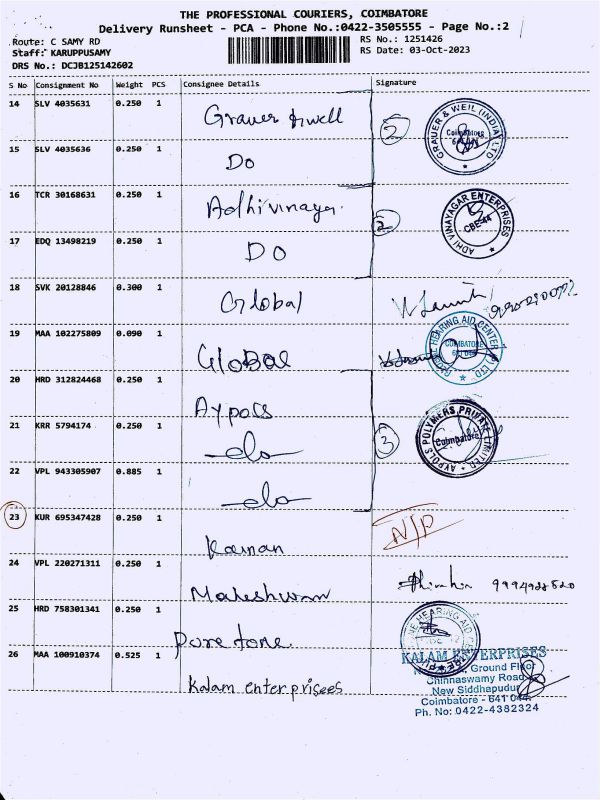 THE PROFESSIONAL COURIERS, COIMBATORE
Delivery Runsheet - PCA - Phone No.:0422-3505555 - Page No.:2
Route: C SAMY RD
Staff: KARUPPUSAMY
DRS No.: DCJB125142602
RS No.: 1251426
RS Date: 03-Oct-2023
S No Consignment No Weight PCS Consignee Details Signature
14 SLV 4035631 0.250 1 Grauer & well 2
GRAUER & WEIL (INDIA) LTD
Coimbatore
15 SLV 4035636 0.250 1 Do
16 TCR 30168631 0.250 1 Adhivinayagar 2
ADHI VINAYAGAR ENTERPRISES
CBE-44
17 EDQ 13498219 0.250 1 DO
18 SVK 20128846 0.300 1 Global
19 MAA 102275809 0.090 1 Global
HEARING AID CENTER
COIMBATORE
20 HRD 312824468 0.250 1 Aypols
21 KRR 5794174 0.250 1 do 3
AYPOLS POLYMERS PRIVATE LIMITED
Coimbatore
22 VPL 943305907 0.885 1 do
23 KUR 695347428 0.250 1 Kannan N/P
24 VPL 220271311 0.250 1 Maheshwari 9994928520
25 HRD 758301341 0.250 1 Pure tone
HEARING AID
26 MAA 100910374 0.525 1 Kalam enterprisees
KALAM ENTERPRISES
Ground Floor
Chinnaswamy Road
New Siddhapudur
Coimbatore - 641 044
Ph. No: 0422-4382324